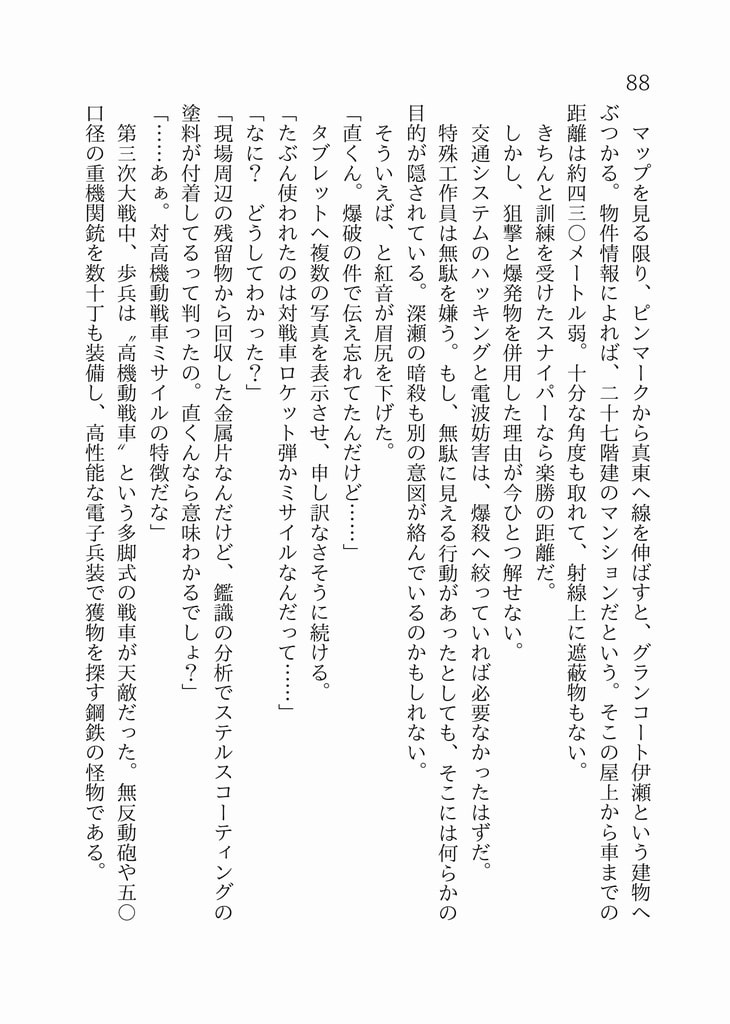 88
マップを見る限り、ピンマークから真東へ線を伸ばすと、グランコート伊瀬という建物へ
ぶつかる。物件情報によれば、二十七階建のマンションだという。そこの屋上から車までの
距離は約四三〇メートル弱。十分な角度も取れて、射線上に遮蔽物もない。
きちんと訓練を受けたスナイパーなら楽勝の距離だ。
しかし、狙撃と爆発物を併用した理由が今ひとつ解せない。
交通システムのハッキングと電波妨害は、爆殺へ絞っていれば必要なかったはずだ。
特殊工作員は無駄を嫌う。もし、無駄に見える行動があったとしても、そこには何らかの
目的が隠されている。深瀬の暗殺も別の意図が絡んでいるのかもしれない。
そういえば、と紅音が眉尻を下げた。
「直くん。爆破の件で伝え忘れてたんだけど……」
タブレットへ複数の写真を表示させ、申し訳なさそうに続ける。
「たぶん使われたのは対戦車ロケット弾かミサイルなんだって……」
「なに？　どうしてわかった？」
「現場周辺の残留物から回収した金属片なんだけど、鑑識の分析でステルスコーティングの
塗料が付着してるって判ったの。直くんなら意味わかるでしょ？」
「……あぁ。対高機動戦車ミサイルの特徴だな」
第三次大戦中、歩兵は〝高機動戦車〟という多脚式の戦車が天敵だった。無反動砲や五〇
口径の重機関銃を数十丁も装備し、高性能な電子兵装で獲物を探す鋼鉄の怪物である。